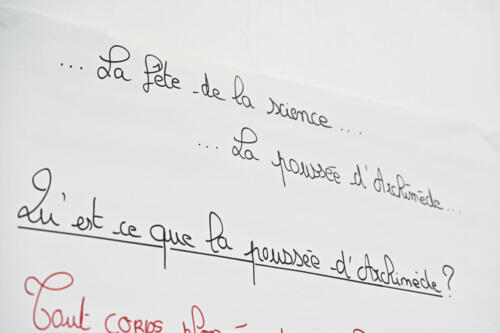 ... La fête de la science...
... La poussée d'Archimède...
Qu'est ce que la poussée d'Archimède ?
Tout CORPS